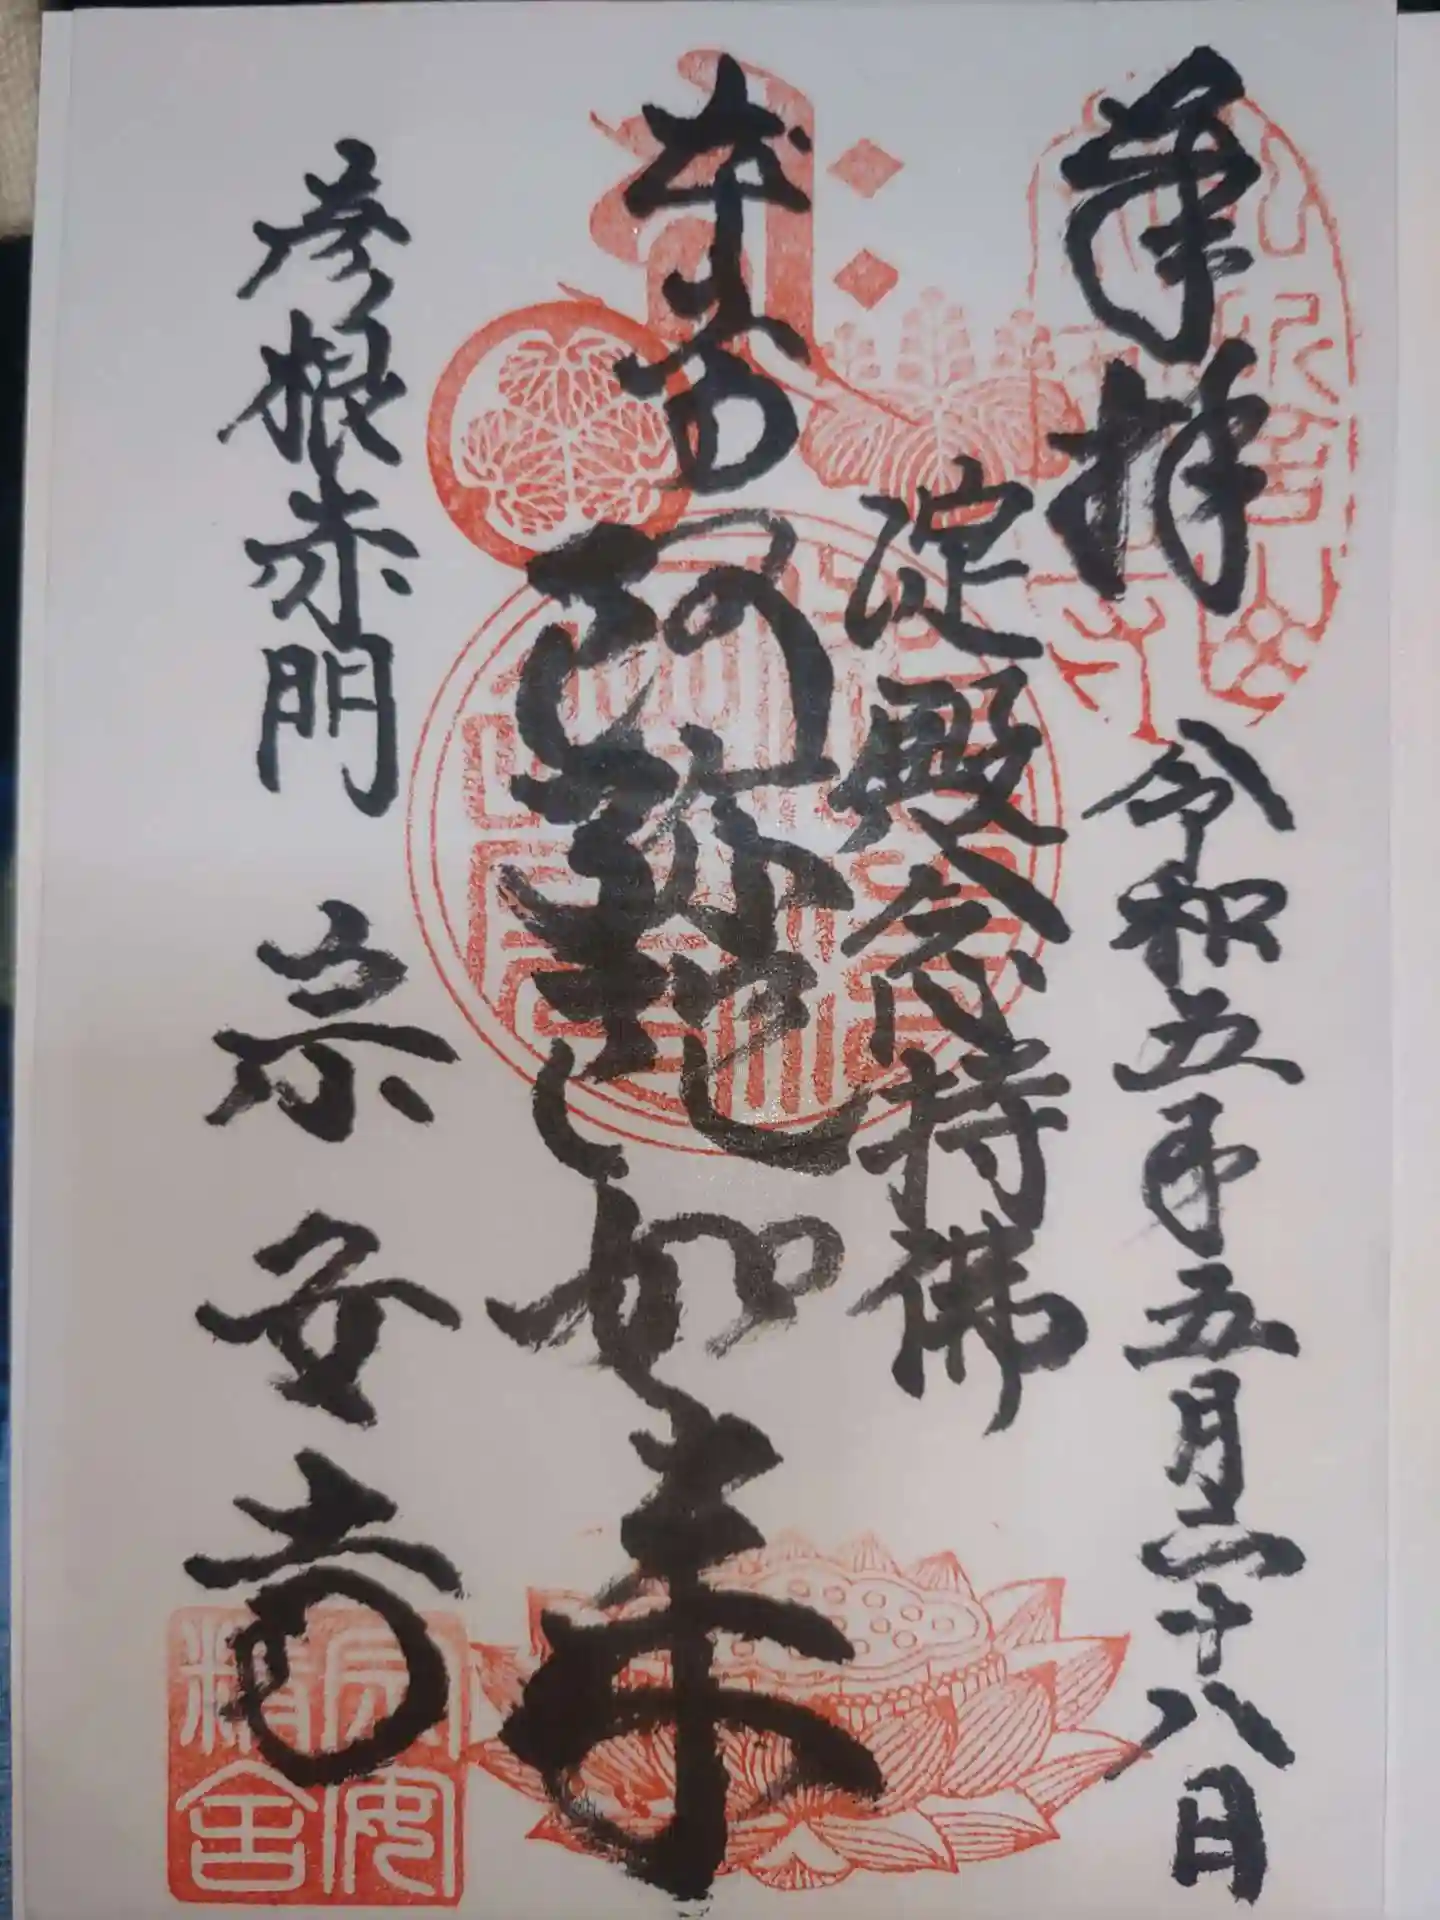 奉拝
令和五年五月二十八日
淀殿念持佛
本尊
阿弥陀如来
彦根赤門
宗安寺